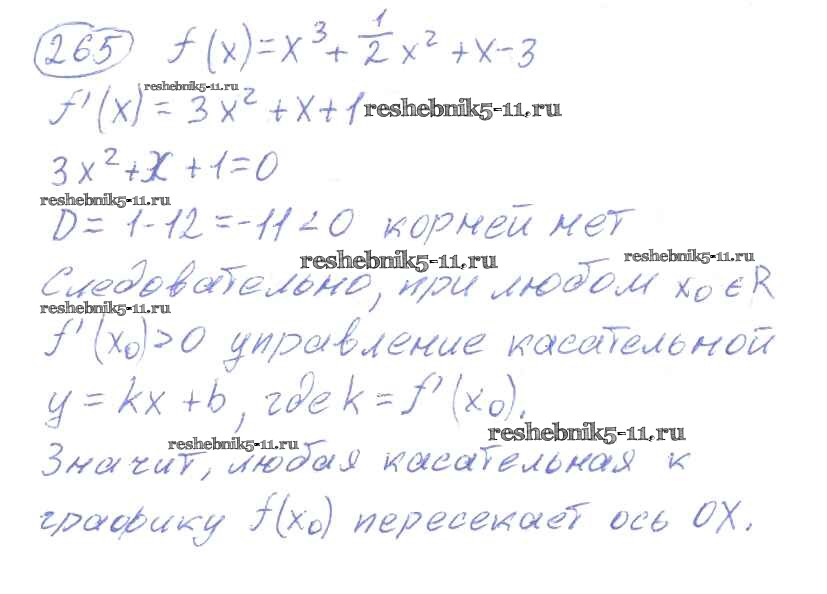 265 f(x)=x³+1/2x²+x-3
reshebnik5-11.ru
f'(x)=3x²+x+1 reshebnik5-11.ru
3x²+x+1=0
reshebnik5-11.ru
D=1-12=-11<0 корней нет
reshebnik5-11.ru reshebnik5-11.ru
Следовательно, при любом x₀∈R
reshebnik5-11.ru
f'(x₀)>0 управление касательной
y=kx+b, где k=f'(x₀).
reshebnik5-11.ru reshebnik5-11.ru
Значит, любая касательная к
графику f(x₀) пересекает ось OX.